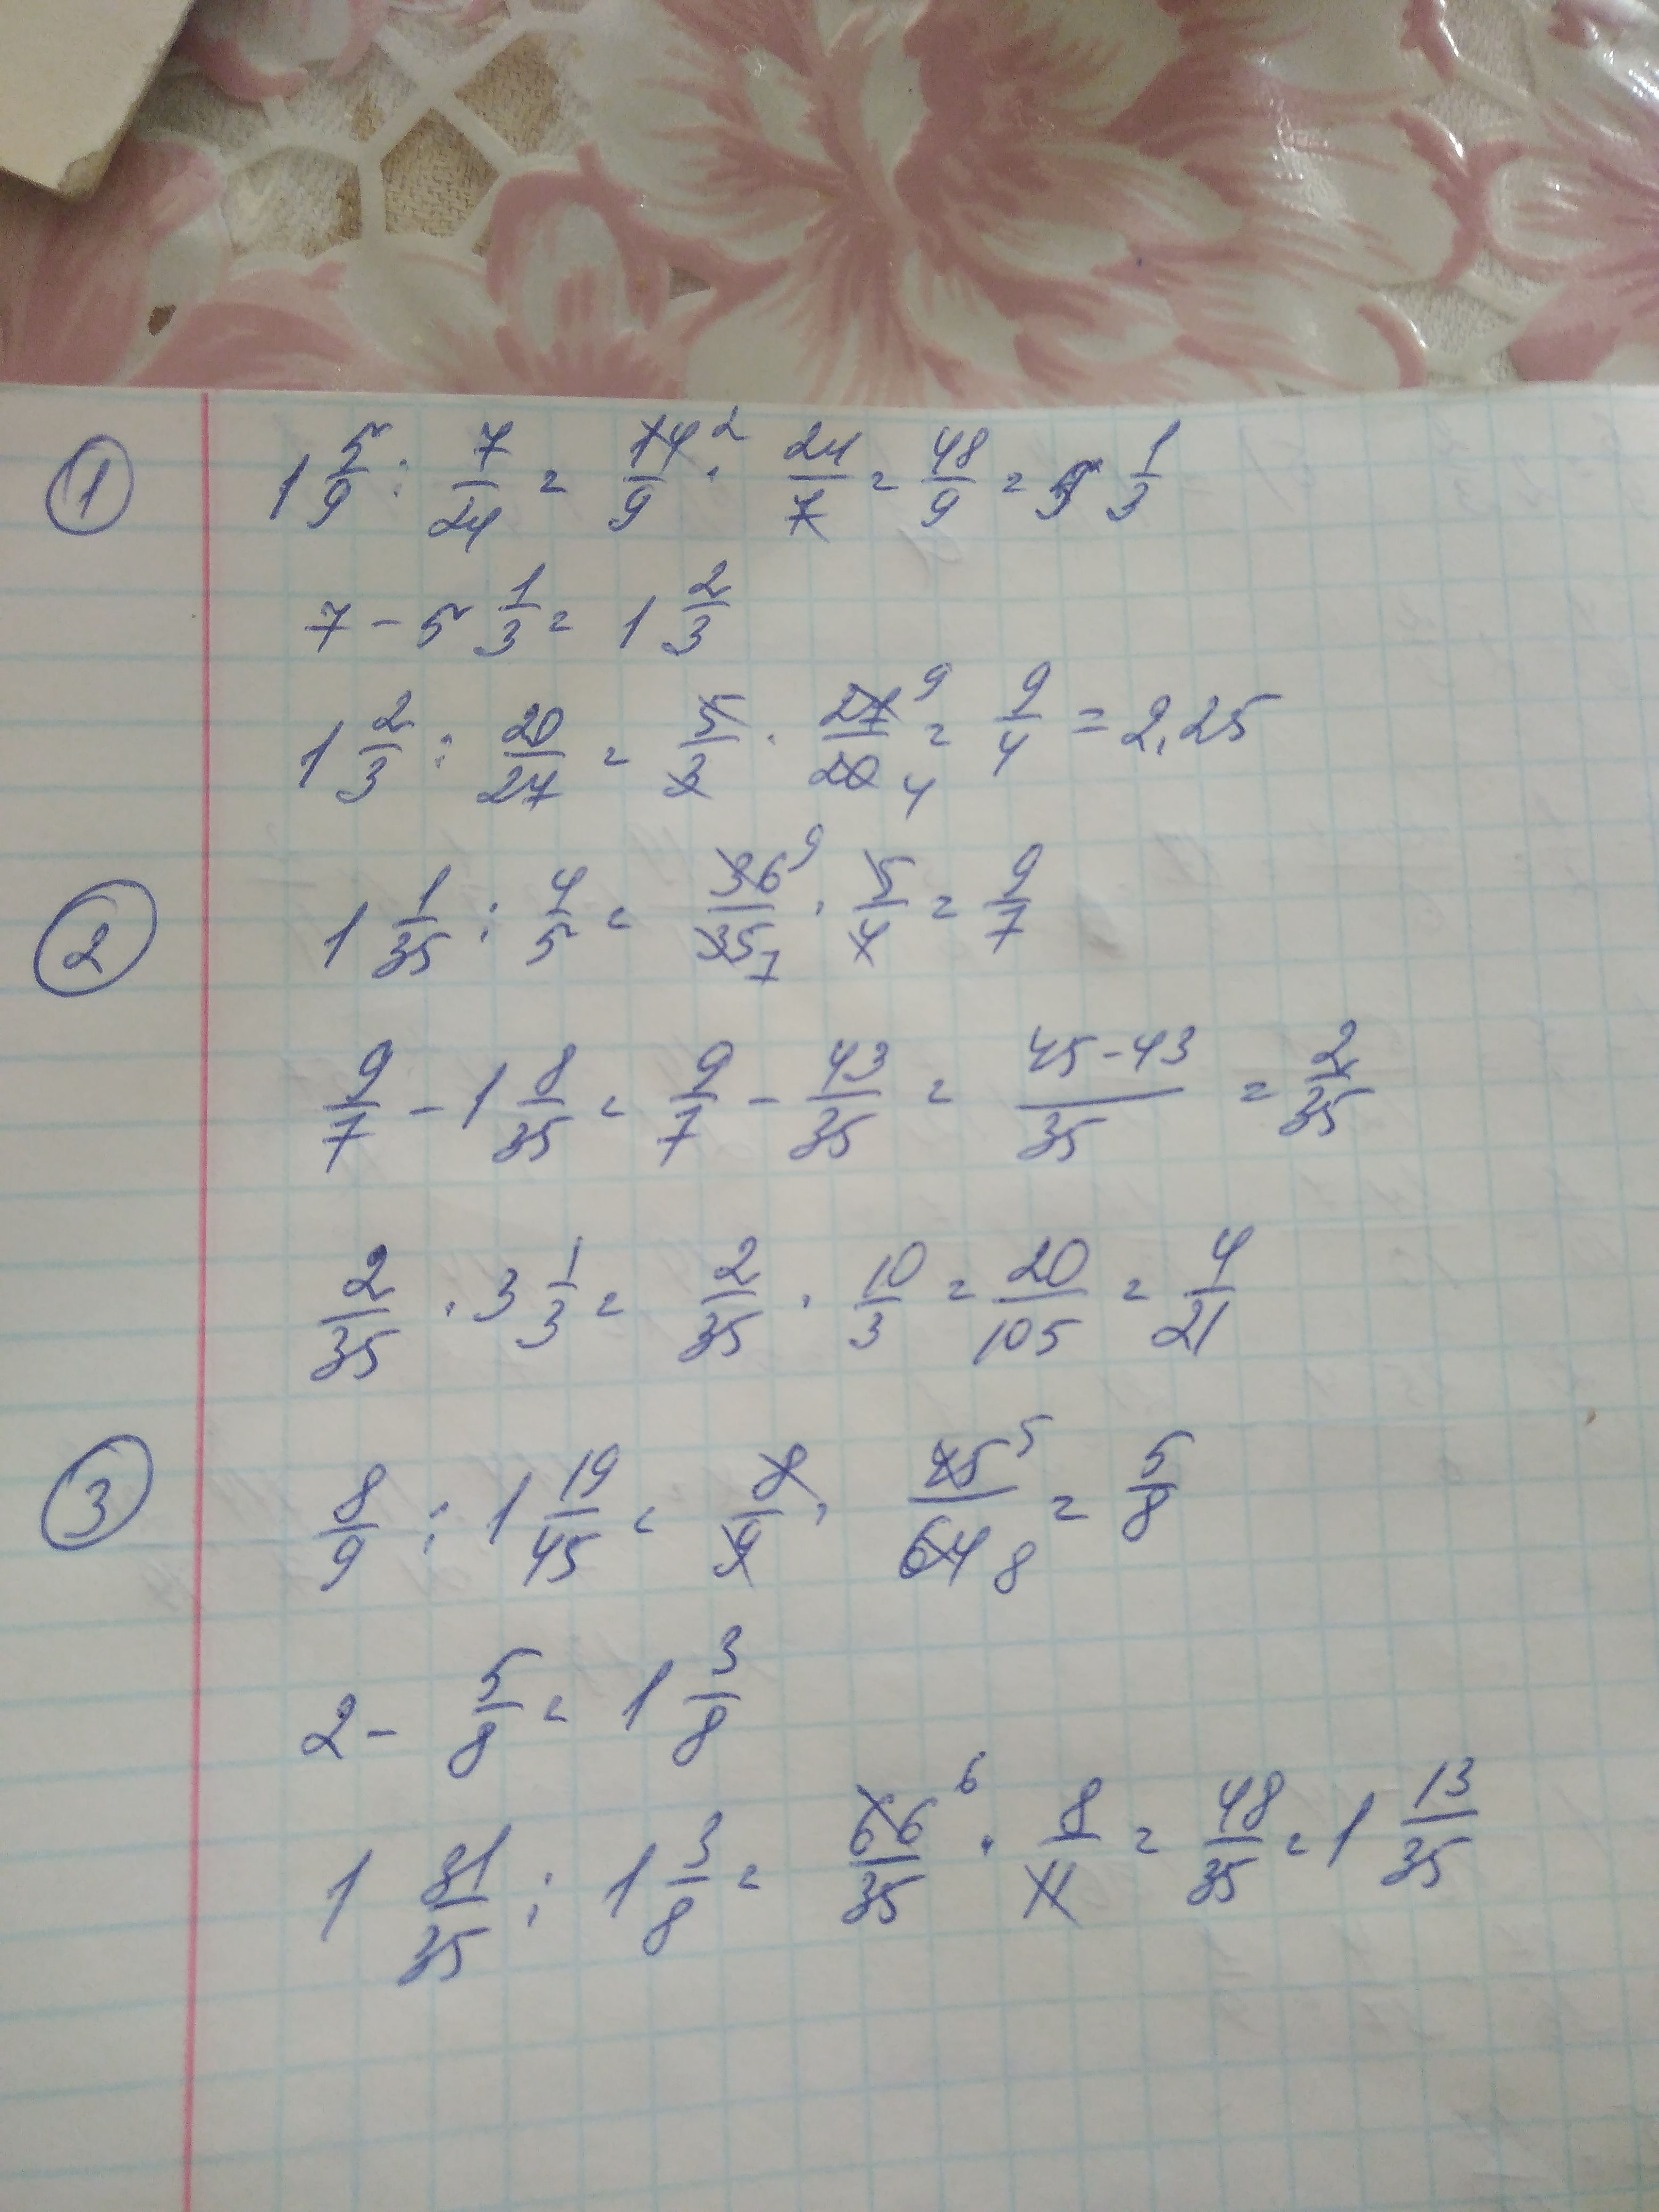 ① 1 5/9 : 7/24 = 14/9 2 · 24/7 = 48/9 = 5 1/3
7 - 5 1/3 = 1 2/3
1 2/3 : 20/27 = 5/3 · 27/20 9 4 = 9/4 = 2,25
② 1 1/35 : 4/5 = 36/35 9 7 · 5/4 = 9/7
9/7 - 1 8/35 = 9/7 - 43/35 = 45-43/35 = 2/35
2/35 · 3 1/3 = 2/35 · 10/3 = 20/105 = 4/21
③ 8/9 : 1 19/45 = 8/9 · 45/64 5 8 = 5/8
2 - 5/8 = 1 3/8
1 31/35 : 1 3/8 = 66/35 6 · 8/11 = 48/35 = 1 13/35